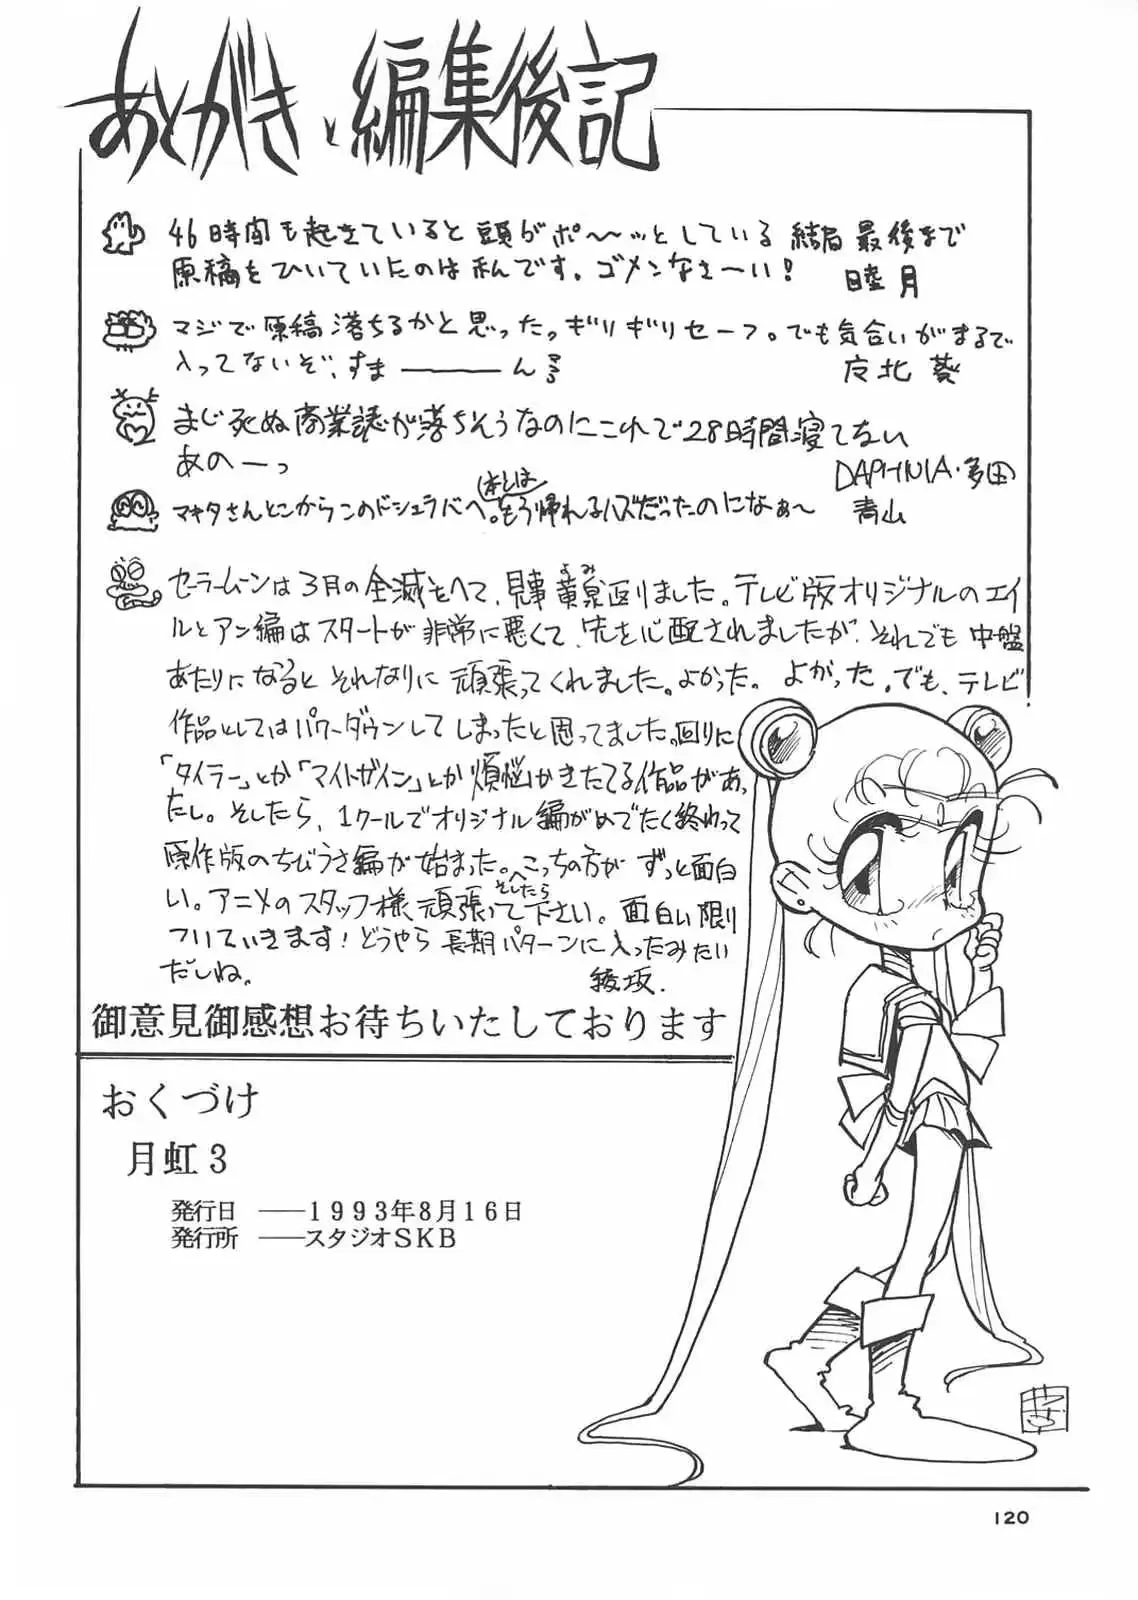 あとがきと編集後記
46時間も起きていると頭がポ〜ッとしている 結局 最後まで
原稿をひいていたのは私んです。ゴメンなさ〜い!
睦月
マジで原稿落ちるかと思ったっギリギリセーフ。でも気合いがまるで
入ってないぞ、すまーーーん
友北 葵
まじ死ぬ商業誌が落ちそうなのにこれで28時間寝てない
あのーっ
DAPHNIA・多田
マキタさんとこからこのドシュラバへ。(本とは)もう帰れるハズだったのになぁ〜
青山
セーラームーンは3月の全滅をへて、見事黄泉返りました。テレビ版オリジナルのエイ
よみ
ルとアン編はスタートが非常に悪くて、先を心配されましたが、それでも中盤
あたりになるとそれなりに頑張ってくれました。よかった。よかった。でも、テレビ
作品としてはパワーダウンしてしまったと思ってました。回りに
「タイラー」とか「マイトガイン」とか煩悩かきたてる作品があっ
たし。そしたら、1クールでオリジナル編がめでたく終わって
原作版のちびうさ編が始まった。こっちの方がずっと面白
い。アニメのスタッフ様頑張って下さい。そしたら面白い限り
ついていきます!どうやら長期パターンに入ったみたい
だしね。
綾坂.
御意見御感想お待ちいたしております
おくづけ
月虹3
発行日 ――1993年8月16日
発行所 ――スタジオSKB
120